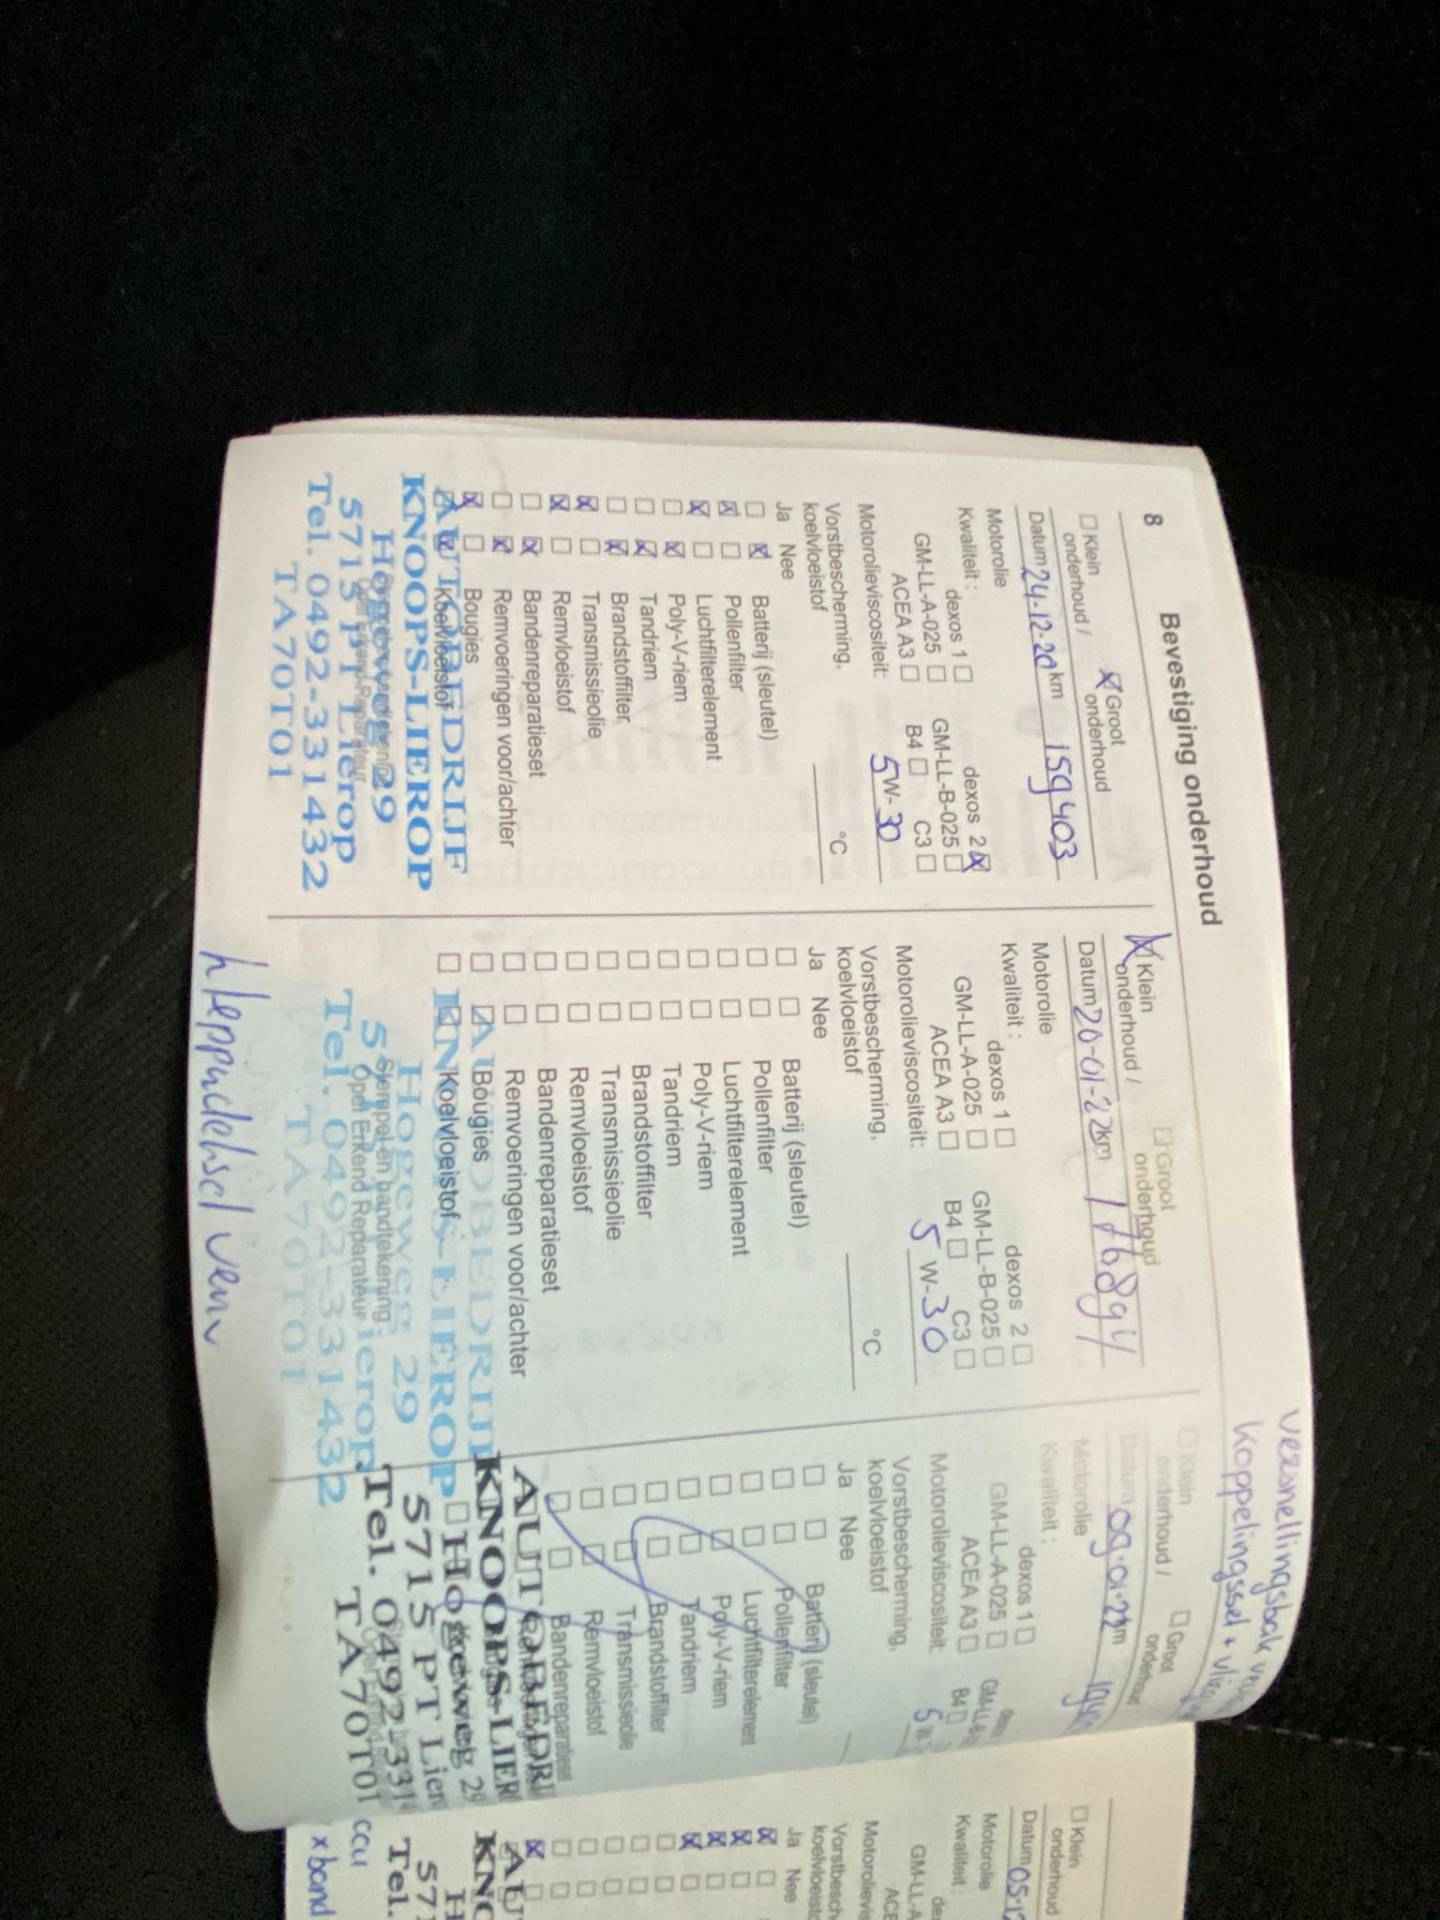 8
Bevestiging onderhoud
Klein onderhoud /
Groot onderhoud
Datum 24-12-20 km 159403
Motorolie
Kwaliteit :
dexos 1
dexos 2
GM-LL-A-025
GM-LL-B-025
ACEA A3
B4
C3
Motorolieviscositeit:
5W-30
Vorstbescherming,
koelvloeistof
°C
Ja Nee
Batterij (sleutel)
Pollenfilter
Luchtfilterelement
Poly-V-riem
Tandriem
Brandstoffilter
Transmissieolie
Remvloeistof
Bandenreparatieset
Remvoeringen voor/achter
Bougies
Koelvloeistof
AUTOBEDRIJF
KNOOPS-LIEROP
Hogeweg 29
5715 PT Lierop
Tel. 0492-331432
TA70T01
Klein
onderhoud /
Groot
onderhoud
Datum 20-01-22 km
Motorolie
Kwaliteit :
dexos 1
dexos 2
GM-LL-A-025
GM-LL-B-025
ACEA A3
B4
C3
Motorolieviscositeit:
5 W-30
Vorstbescherming,
koelvloeistof
°C
Ja Nee
Batterij (sleutel)
Pollenfilter
Luchtfilterelement
Poly-V-riem
Tandriem
Brandstoffilter
Transmissieolie
Remvloeistof
Bandenreparatieset
Remvoeringen voor/achter
Bougies
Koelvloeistof
Stempel en handtekening
Opel Erkend Reparateur
Hogeweg 29
Tel. 0492-331432
TA70T01
kleppendeksel verv
versnellingsbak
koppelingsset +
Klein
onderhoud /
Groot
Datum
Motorolie
Kwaliteit :
dexos 1
GM-LL-A-025
ACEA A3
B4
Motorolieviscositeit
Vorstbescherming,
koelvloeistof
Ja Nee
Batterij (sleutel)
Pollenfilter
Luchtfilterelement
Poly-V-riem
Tandriem
Brandstoffilter
Transmissieolie
Remvloeistof
Bandenreparatieset
Hogeweg 29
5715 PT
Tel. 0492-331
TA70T01
Klein
onderhoud
Datum 05-12
Motorolie
Kwaliteit :
Ja Nee
Tel.